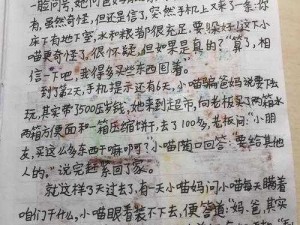 一脸问号,她问爸妈
有,虽然奇怪,但还是信了,突然手机上又来了一条:你
床下有地下室,水和粮都很充足,要躲好!这下小
喵更奇怪了,很怀疑,但如果是真的?"算了,相
信一下吧,我得多买些东西囤着。"
到了第2天,手机提示还有6天,小喵骗爸妈说要下去
玩,其实带了500压岁钱,她来到超市,向老板买了两箱水
两箱方便面和一箱压缩饼干,去了100多,老板问:"小朋
友,买这么多东西干嘛啊?小喵回答:要给其他
人的。"说完赶紧回了家。
就这样了3天过去了,有一天小喵妈问小喵每天瞒着
咱们干什么,小喵眼看装不下去,便答道:"妈、爸,其实